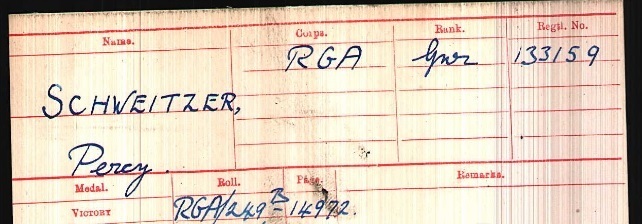 Name. Corps. Rank. Regtl. No.
RGA Gnr 133159
SCHWEITZER,
Percy.
Medal. Roll. Page. Remarks.
VICTORY RGA/249B 14972.